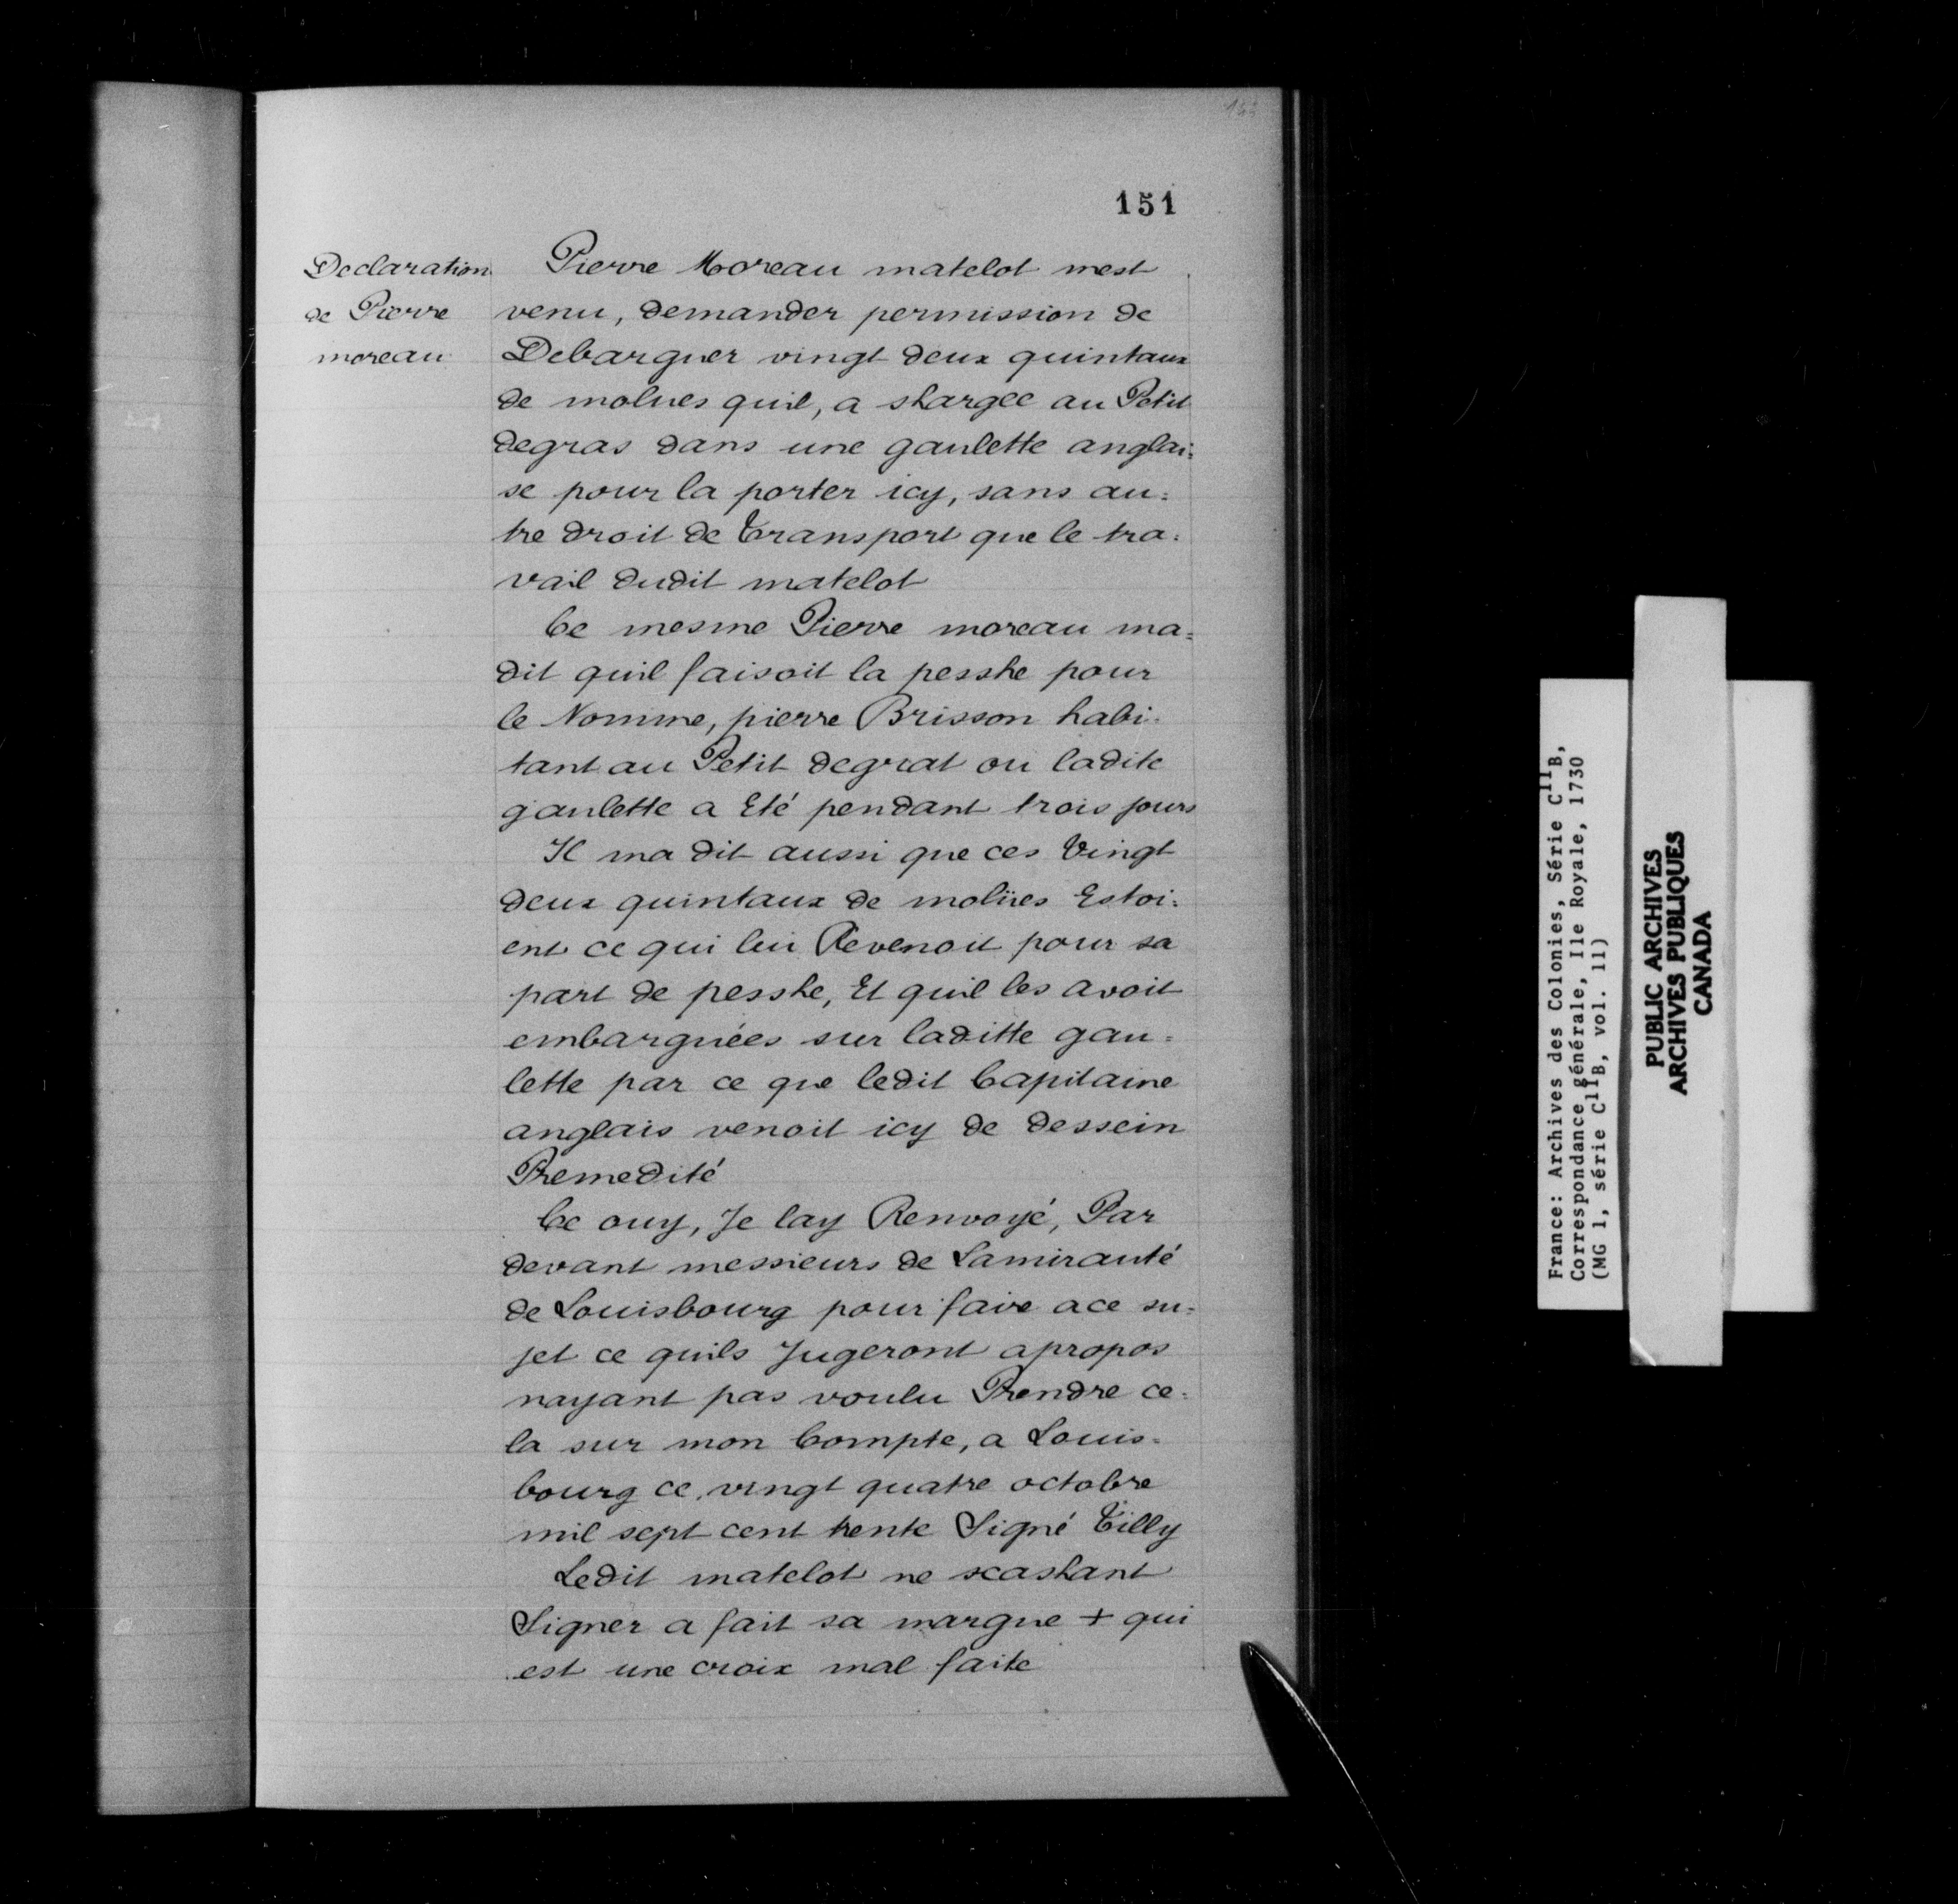 151
Declaration
de Pierre
moreau
Pierre Moreau matelot mest
venu, demander permission de
Debarquer vingt deux quintaux
de molues quil, a shargee au Petit
degras dans une gaulette anglai=
se pour la porter icy, sans au=
tre droit de Transport que le tra=
vail dudit matelot
Ce mesme Pierre moreau ma=
dit quil faisoit la pesshe pour
le Nomme, pierre Brisson habi=
tant au Petit degrat ou ladite
gaulette a Eté pendant trois jours
Il ma dit aussi que ces Vingt
deux quintaux de molües Estoi=
ent ce qui lui Revenoit pour sa
part de pesshe, Et quil les avoit
embarquées sur laditte gau=
lette par ce que ledit Capitaine
anglais venoit icy de dessein
Premedité
Ce ouy, Je lay Renvoyé, Par
devant messieurs de Lamirauté
de Louisbourg pour faire ace su=
jet ce quils Jugeront apropos
nayant pas voulu Prendre ce=
la sur mon Compte, a Louis=
bourg ce vingt quatre octobre
mil sept cent trente Signé Tilly
Ledit matelot ne scashant
Signer a fait sa marque + qui
est une croix mal faite
France: Archives des Colonies, Série C11B,
Correspondance générale, Ile Royale, 1730
(MG 1, série C11B, vol. 11)
PUBLIC ARCHIVES
ARCHIVES PUBLIQUES
CANADA